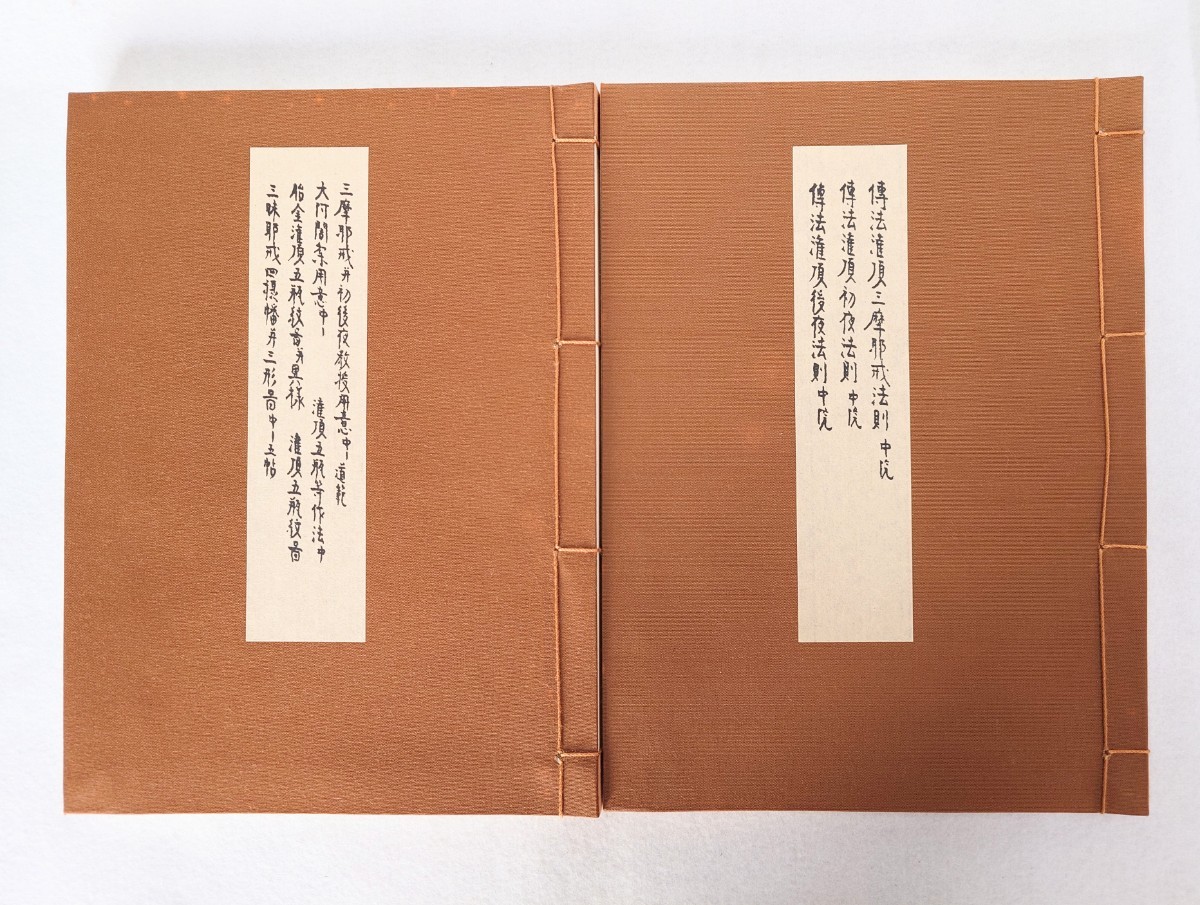 傳法灌頂三摩耶戒法則 中院
傳法灌頂初夜法則 中院
傳法灌頂後夜法則 中院
三摩耶戒并初後夜教授用意中ー 道範
大阿闍梨用意中ー 灌頂五瓶等作法中
胎金灌頂五瓶紋圖并異様 灌頂五瓶紋圖
三昧耶戒四摂幡并三形圖中ー五帖